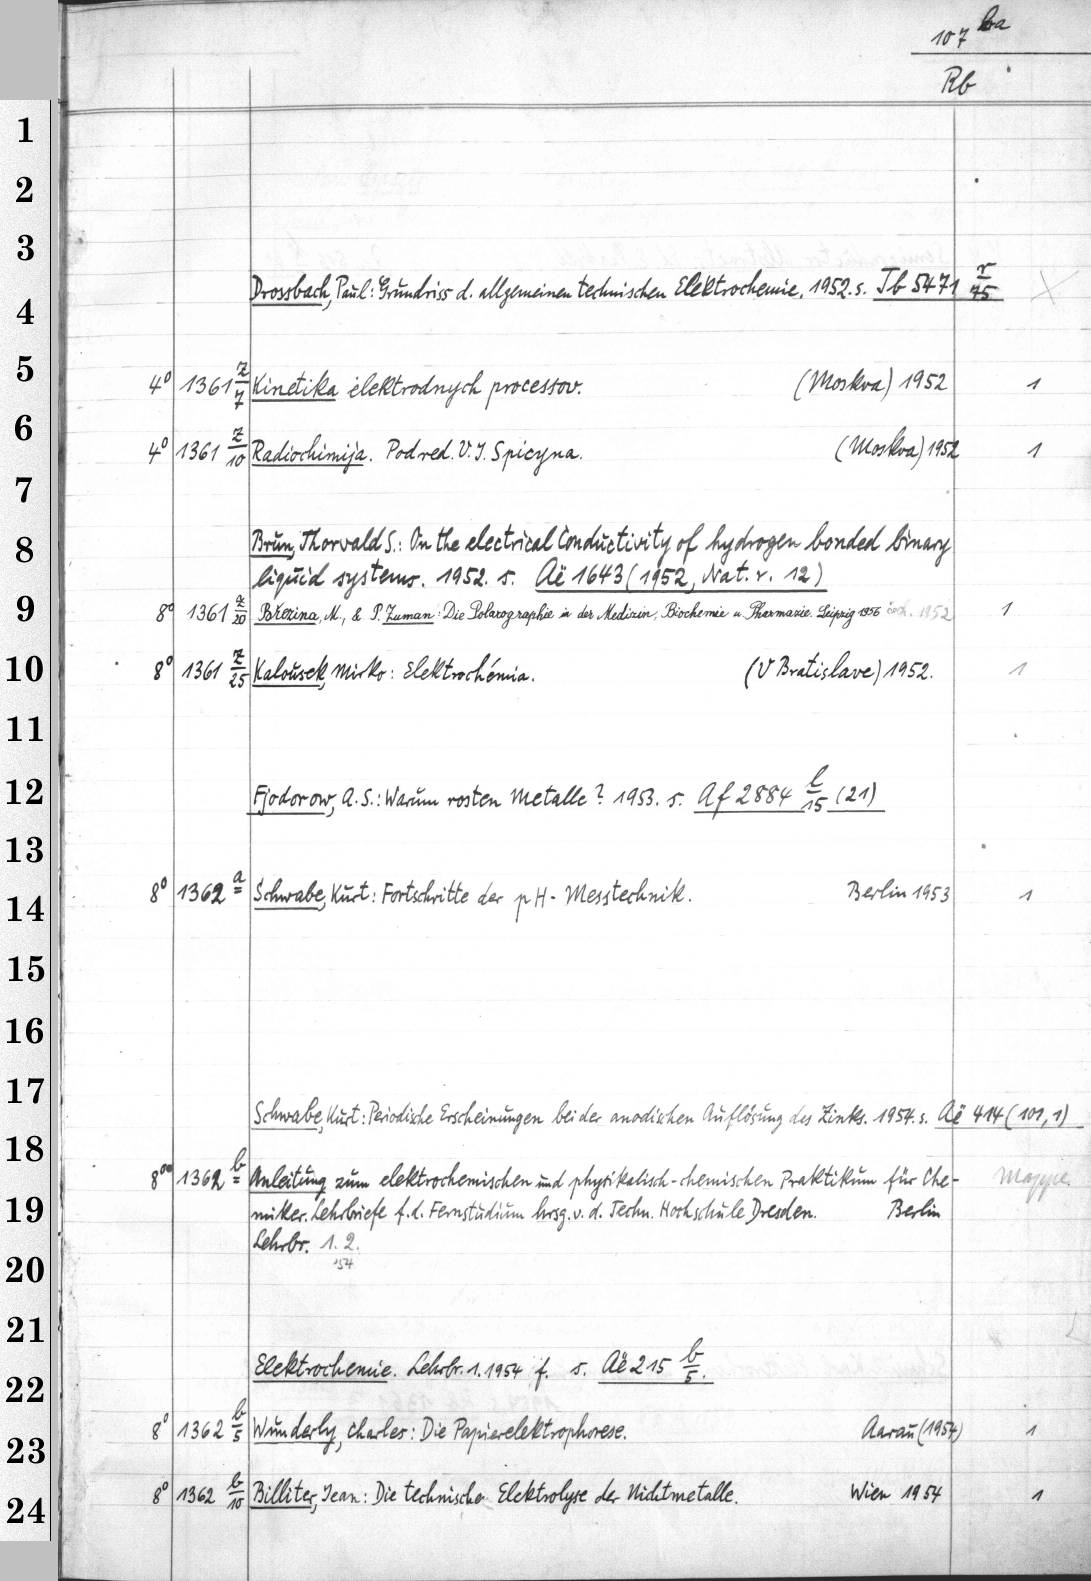 107 ba
Rb
1
2
3
Drossbach, Paul: Grundriss d. allgemeinen technischen Elektrochemie. 1952. s. Tb 5471 r/75
4
5
4° 1361 z/7 Kinetika elektrodnych processov. (Moskva) 1952 1
6
4° 1361 z/10 Radiochimija. Pod red. V. I. Spicyna. (Moskva) 1952 1
7
8
Brun, Thorvald S.: On the electrical Conductivity of hydrogen bonded binary
liquid systems. 1952. s. Aë 1643 (1952, Nat. r. 12)
9
8° 1361 z/20 Březina, M., & P. Zuman: Die Polarographie in der Medizin, Biochemie u. Pharmazie. Leipzig 1956 1952 1
10
8° 1361 z/25 Kalousek, Mirko: Elektrochémia. (V Bratislave) 1952. 1
11
12
Fjodorow, A. S.: Warum rosten Metalle? 1953. s. Af 2884 l/15 (21)
13
14
8° 1362 a Schwabe, Kurt: Fortschritte der pH-Messtechnik. Berlin 1953 1
15
16
17
Schwabe, Kurt: Periodische Erscheinungen bei der anodischen Auflösung des Zinks. 1954. s. Aë 414 (101,1)
18
8°° 1362 b Anleitung zum elektrochemischen und physikalisch-chemischen Praktikum für Che- Mappe
19
miker. Lehrbriefe f. d. Fernstudium hrsg. v. d. Techn. Hochschule Dresden. Berlin
Lehrbr. 1. 2.
'54
20
21
Elektrochemie. Lehrbr. 1. 1954 f. s. Aë 215 b/5.
22
8° 1362 b/5 Wunderly, Charles: Die Papierelektrophorese. Aarau (1954) 1
23
8° 1362 b/10 Billiter, Jean: Die technische Elektrolyse der Nichtmetalle. Wien 1954 1
24